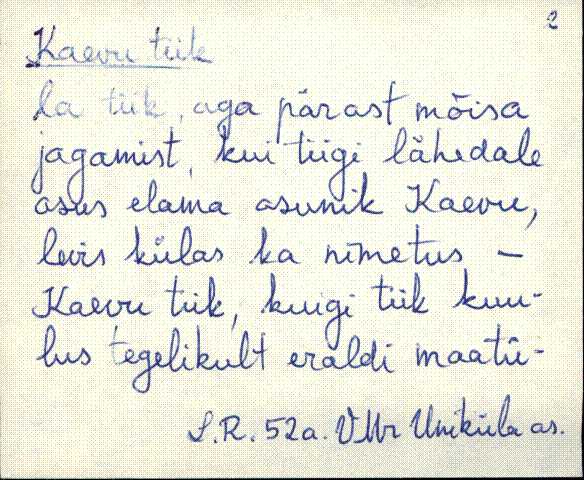 2
Kaevu tiik
la tiik, aga pärast mõisa
jagamist, kui tiigi lähedale
asus elama asunik Kaevu,
levis külas ka nimetus –
Kaevu tiik, kuigi tiik kuu-
lus tegelikult eraldi maatü-
S.R. 52a. VMr Uniküla as.